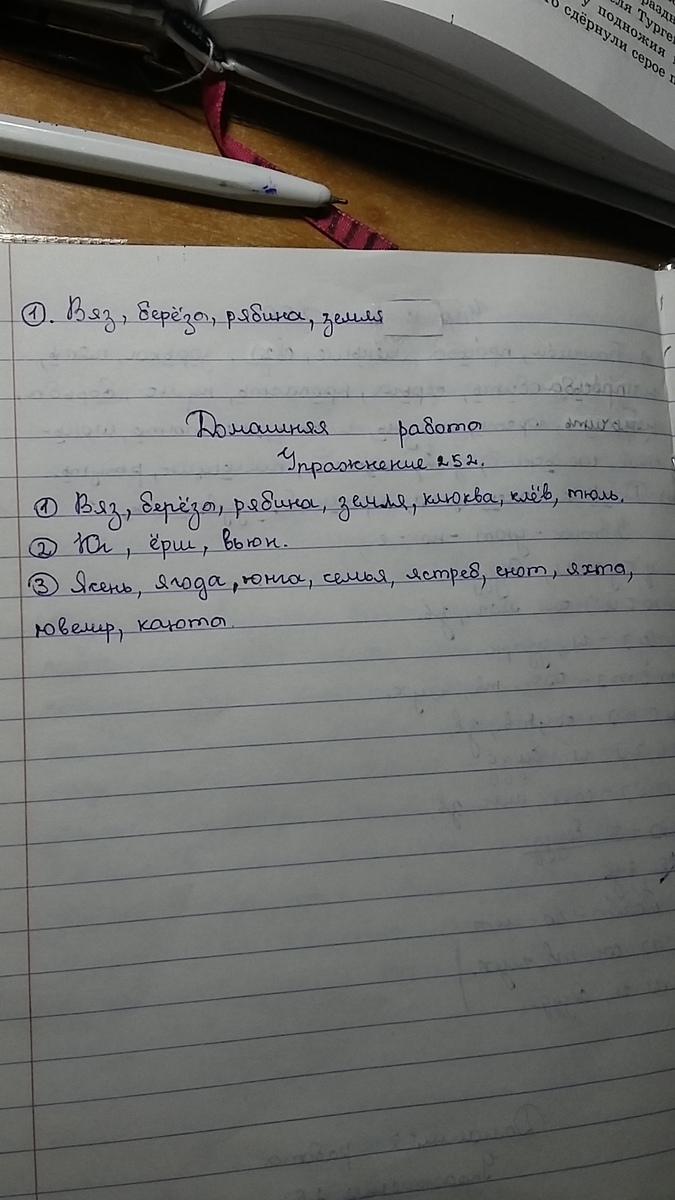 разд
ля Турге
у подножия
о сдёрнули серое п
①. Вяз, берёза, рябина, земля
Домашняя работа
Упражнение 252.
① Вяз, берёза, рябина, земля, клюква, клёв, тюль.
② Юг, ёрш, вьюн.
③ Ясень, ягода, юнга, семья, ястреб, енот, яхта,
ювелир, каюта